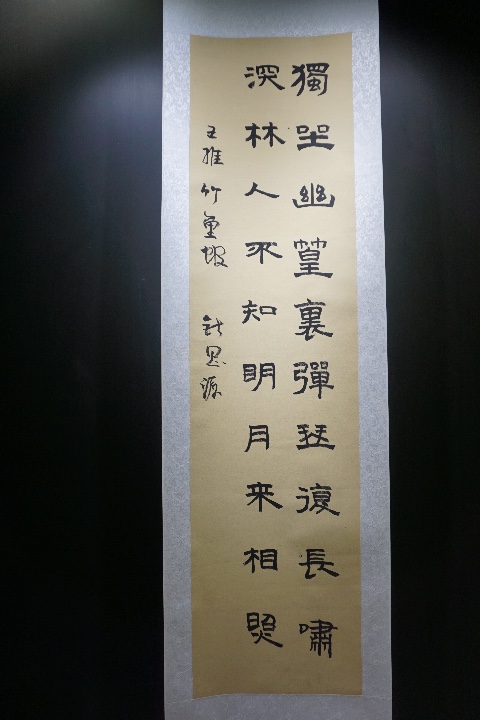 獨坐幽篁裏彈琴復長嘯
深林人不知明月来相照
王維竹里館 思源